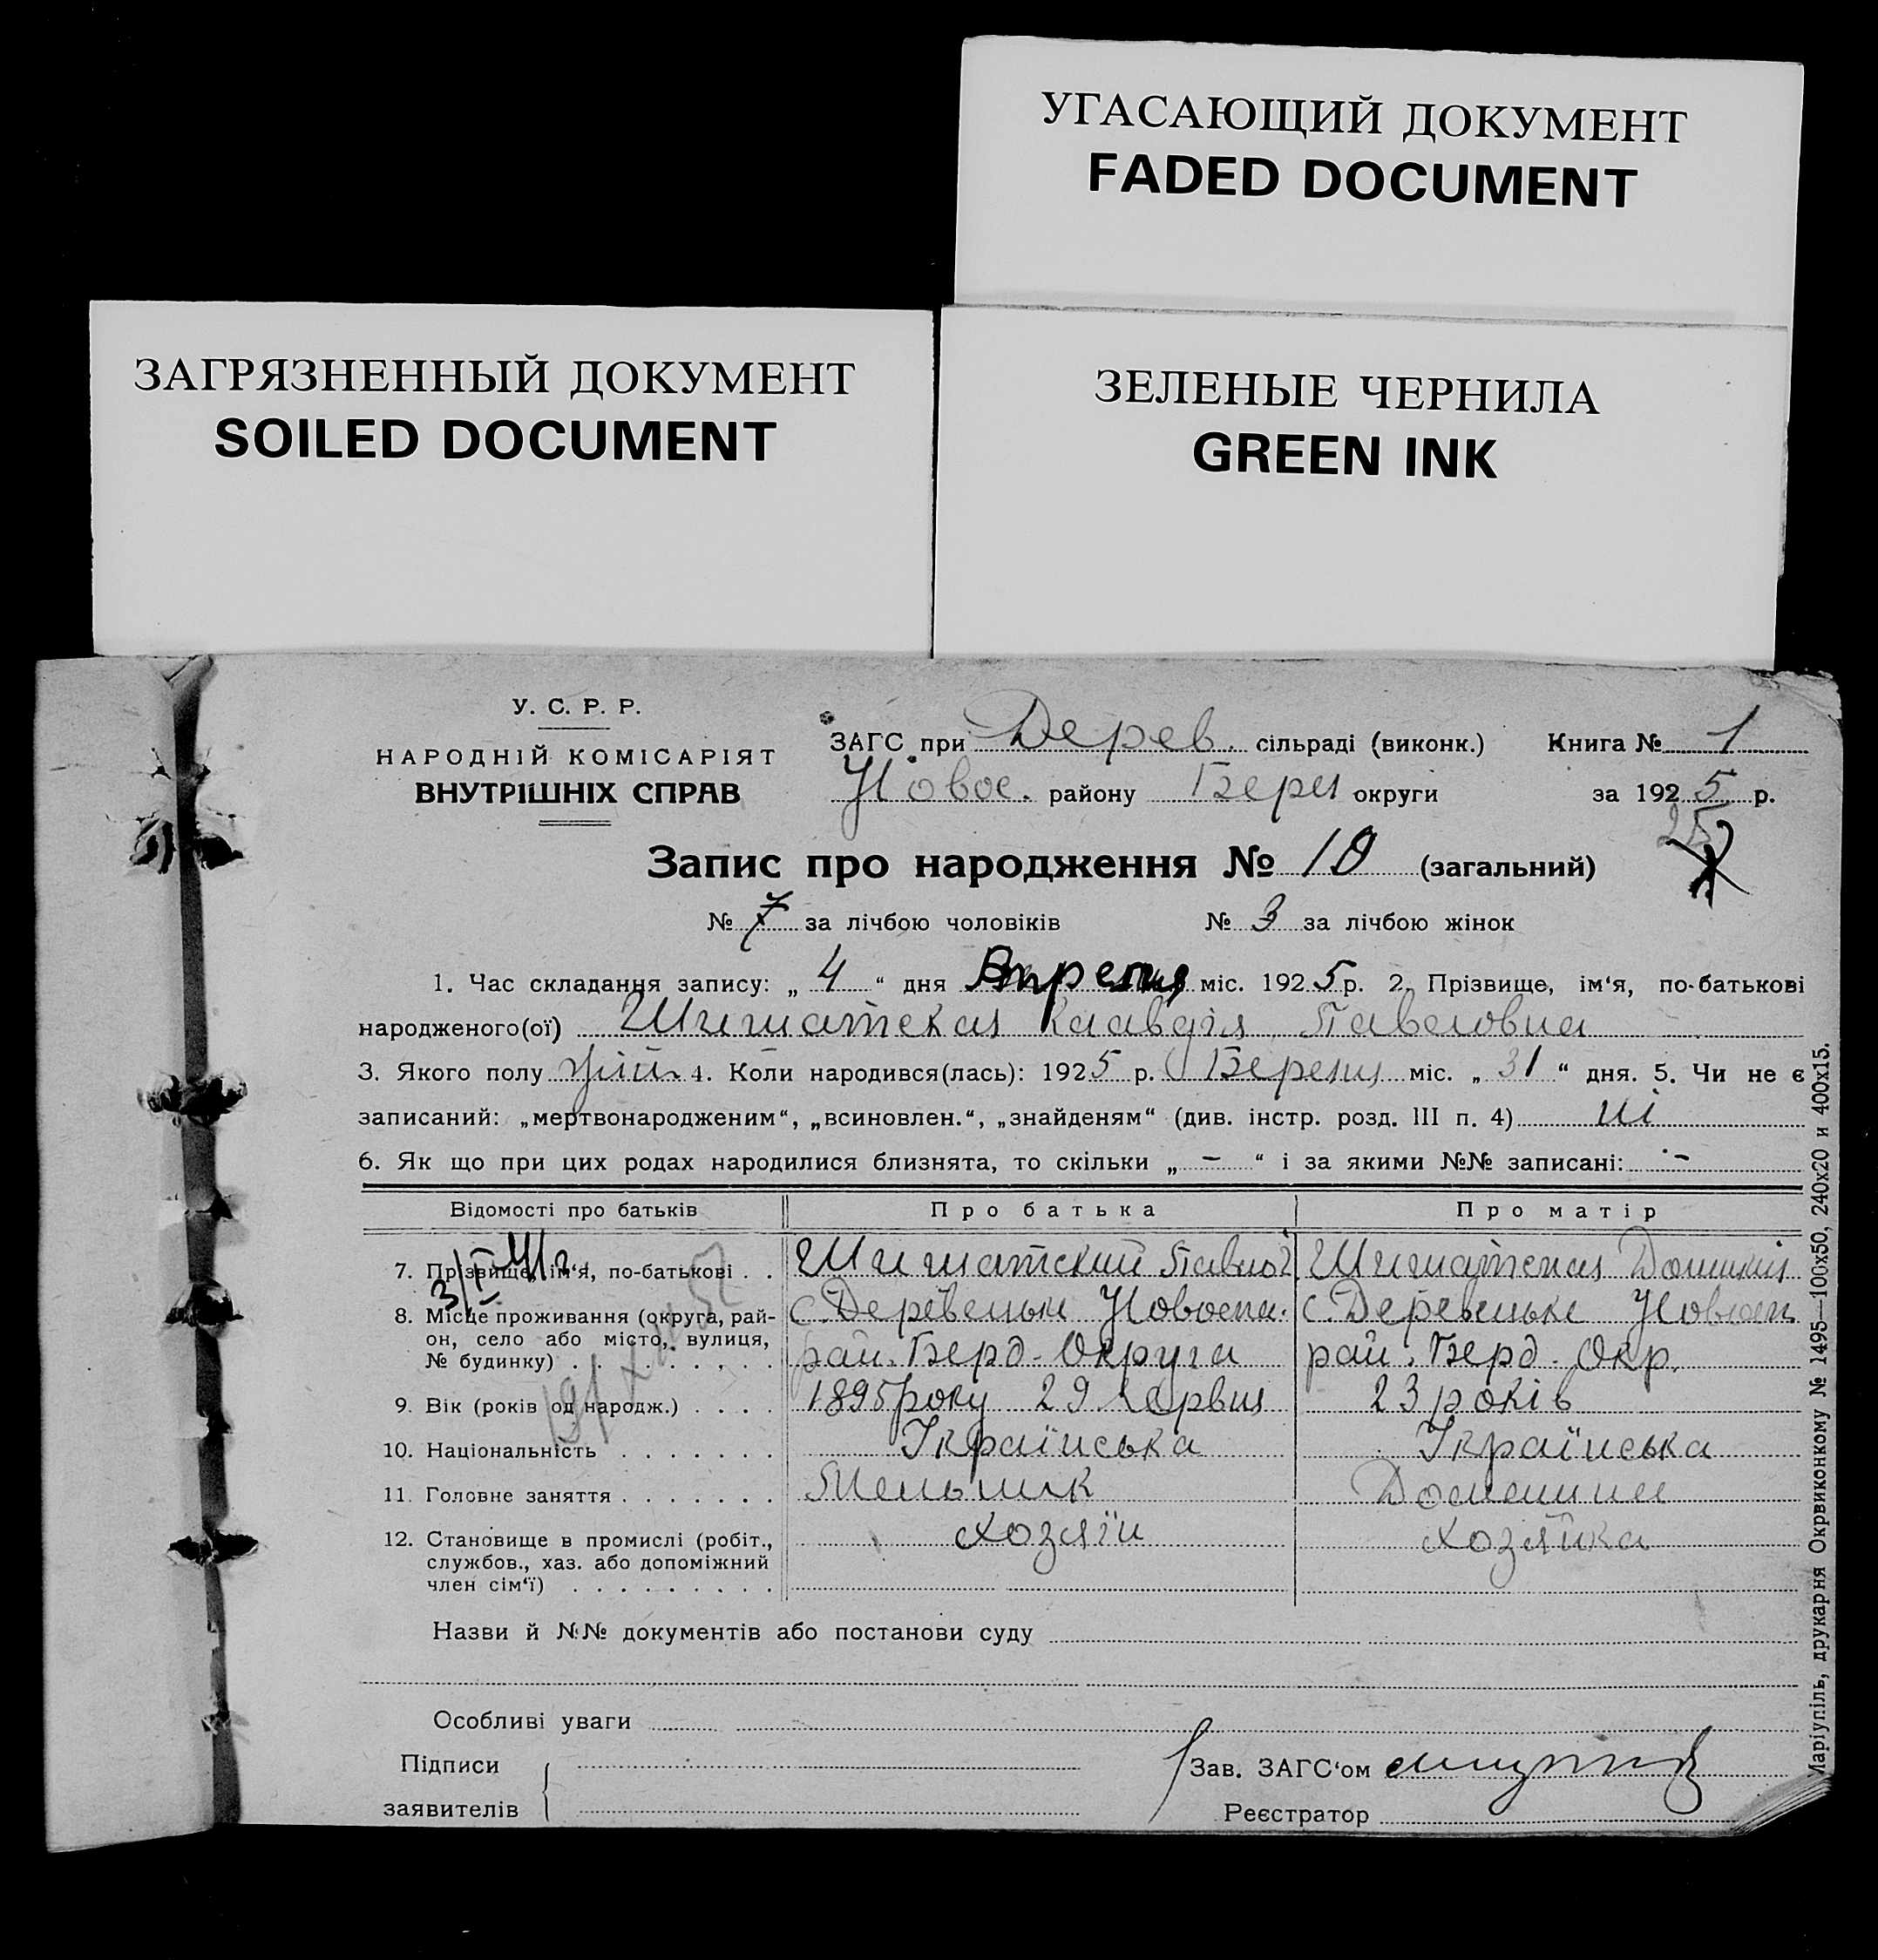 УГАСАЮЩИЙ ДОКУМЕНТ
FADED DOCUMENT
ЗАГРЯЗНЕННЫЙ ДОКУМЕНТ
SOILED DOCUMENT
ЗЕЛЕНЫЕ ЧЕРНИЛА
GREEN INK
У. С. Р. Р.
НАРОДНІЙ КОМІСАРІЯТ
ВНУТРІШНІХ СПРАВ
ЗАГС при Дерев. сільраді (виконк.) Книга № 1
Новос. району округи за 1925 р.
Запис про народження № 10 (загальний)
№ 7 за лічбою чоловіків № 3 за лічбою жінок
1. Час складання запису: „ 4 “ дня міс. 1925 р. 2. Прізвище, ім‘я, по-батькові
народженого(ої) Шишатская Клавдія Павловна
3. Якого полу 4. Коли народився(лась): 1925 р. Березня міс. „ 31 “ дня. 5. Чи не є
записаний: „мертвонародженим“, „всиновлен.“, „знайденям“ (див. інстр. розд. III п. 4) ні
6. Як що при цих родах народилися близнята, то скільки „ – “ і за якими №№ записані: –
Відомості про батьків Про батька Про матір
7. Прізвище, ім‘я, по-батькові . . Шишатский Шишатская
8. Місце проживання (округа, рай-
он, село або місто, вулиця,
№ будинку) . . . . . . . . .
с. Деревеньки рай. Берд. Округа
с. Деревеньки рай. Берд. Окр.
9. Вік (років од народж.) . . . . 1895 року 29 Червня 23 років
10. Національність . . . . . . . Українська Українська
11. Головне заняття . . . . . . . Мельник
12. Становище в промислі (робіт.,
службов., хаз. або допоміжний
член сім‘ї) . . . . . . . . .
хозяїн хозяйка
Назви й №№ документів або постанови суду
Особливі уваги
Підписи
заявителів
Зав. ЗАГС‘ом
Реєстратор
Маріупіль, друкарня Окрвиконкому № 1495—100х50, 240х20 и 400х15.